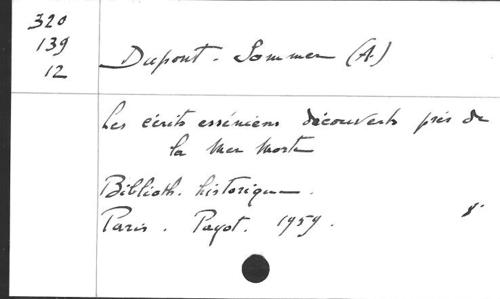 320
139
12
Dupont-Sommer (A.)
Les écrits esséniens découverts près de
la Mer Morte
Biblioth. historique.
Paris. Payot. 1959.
8°